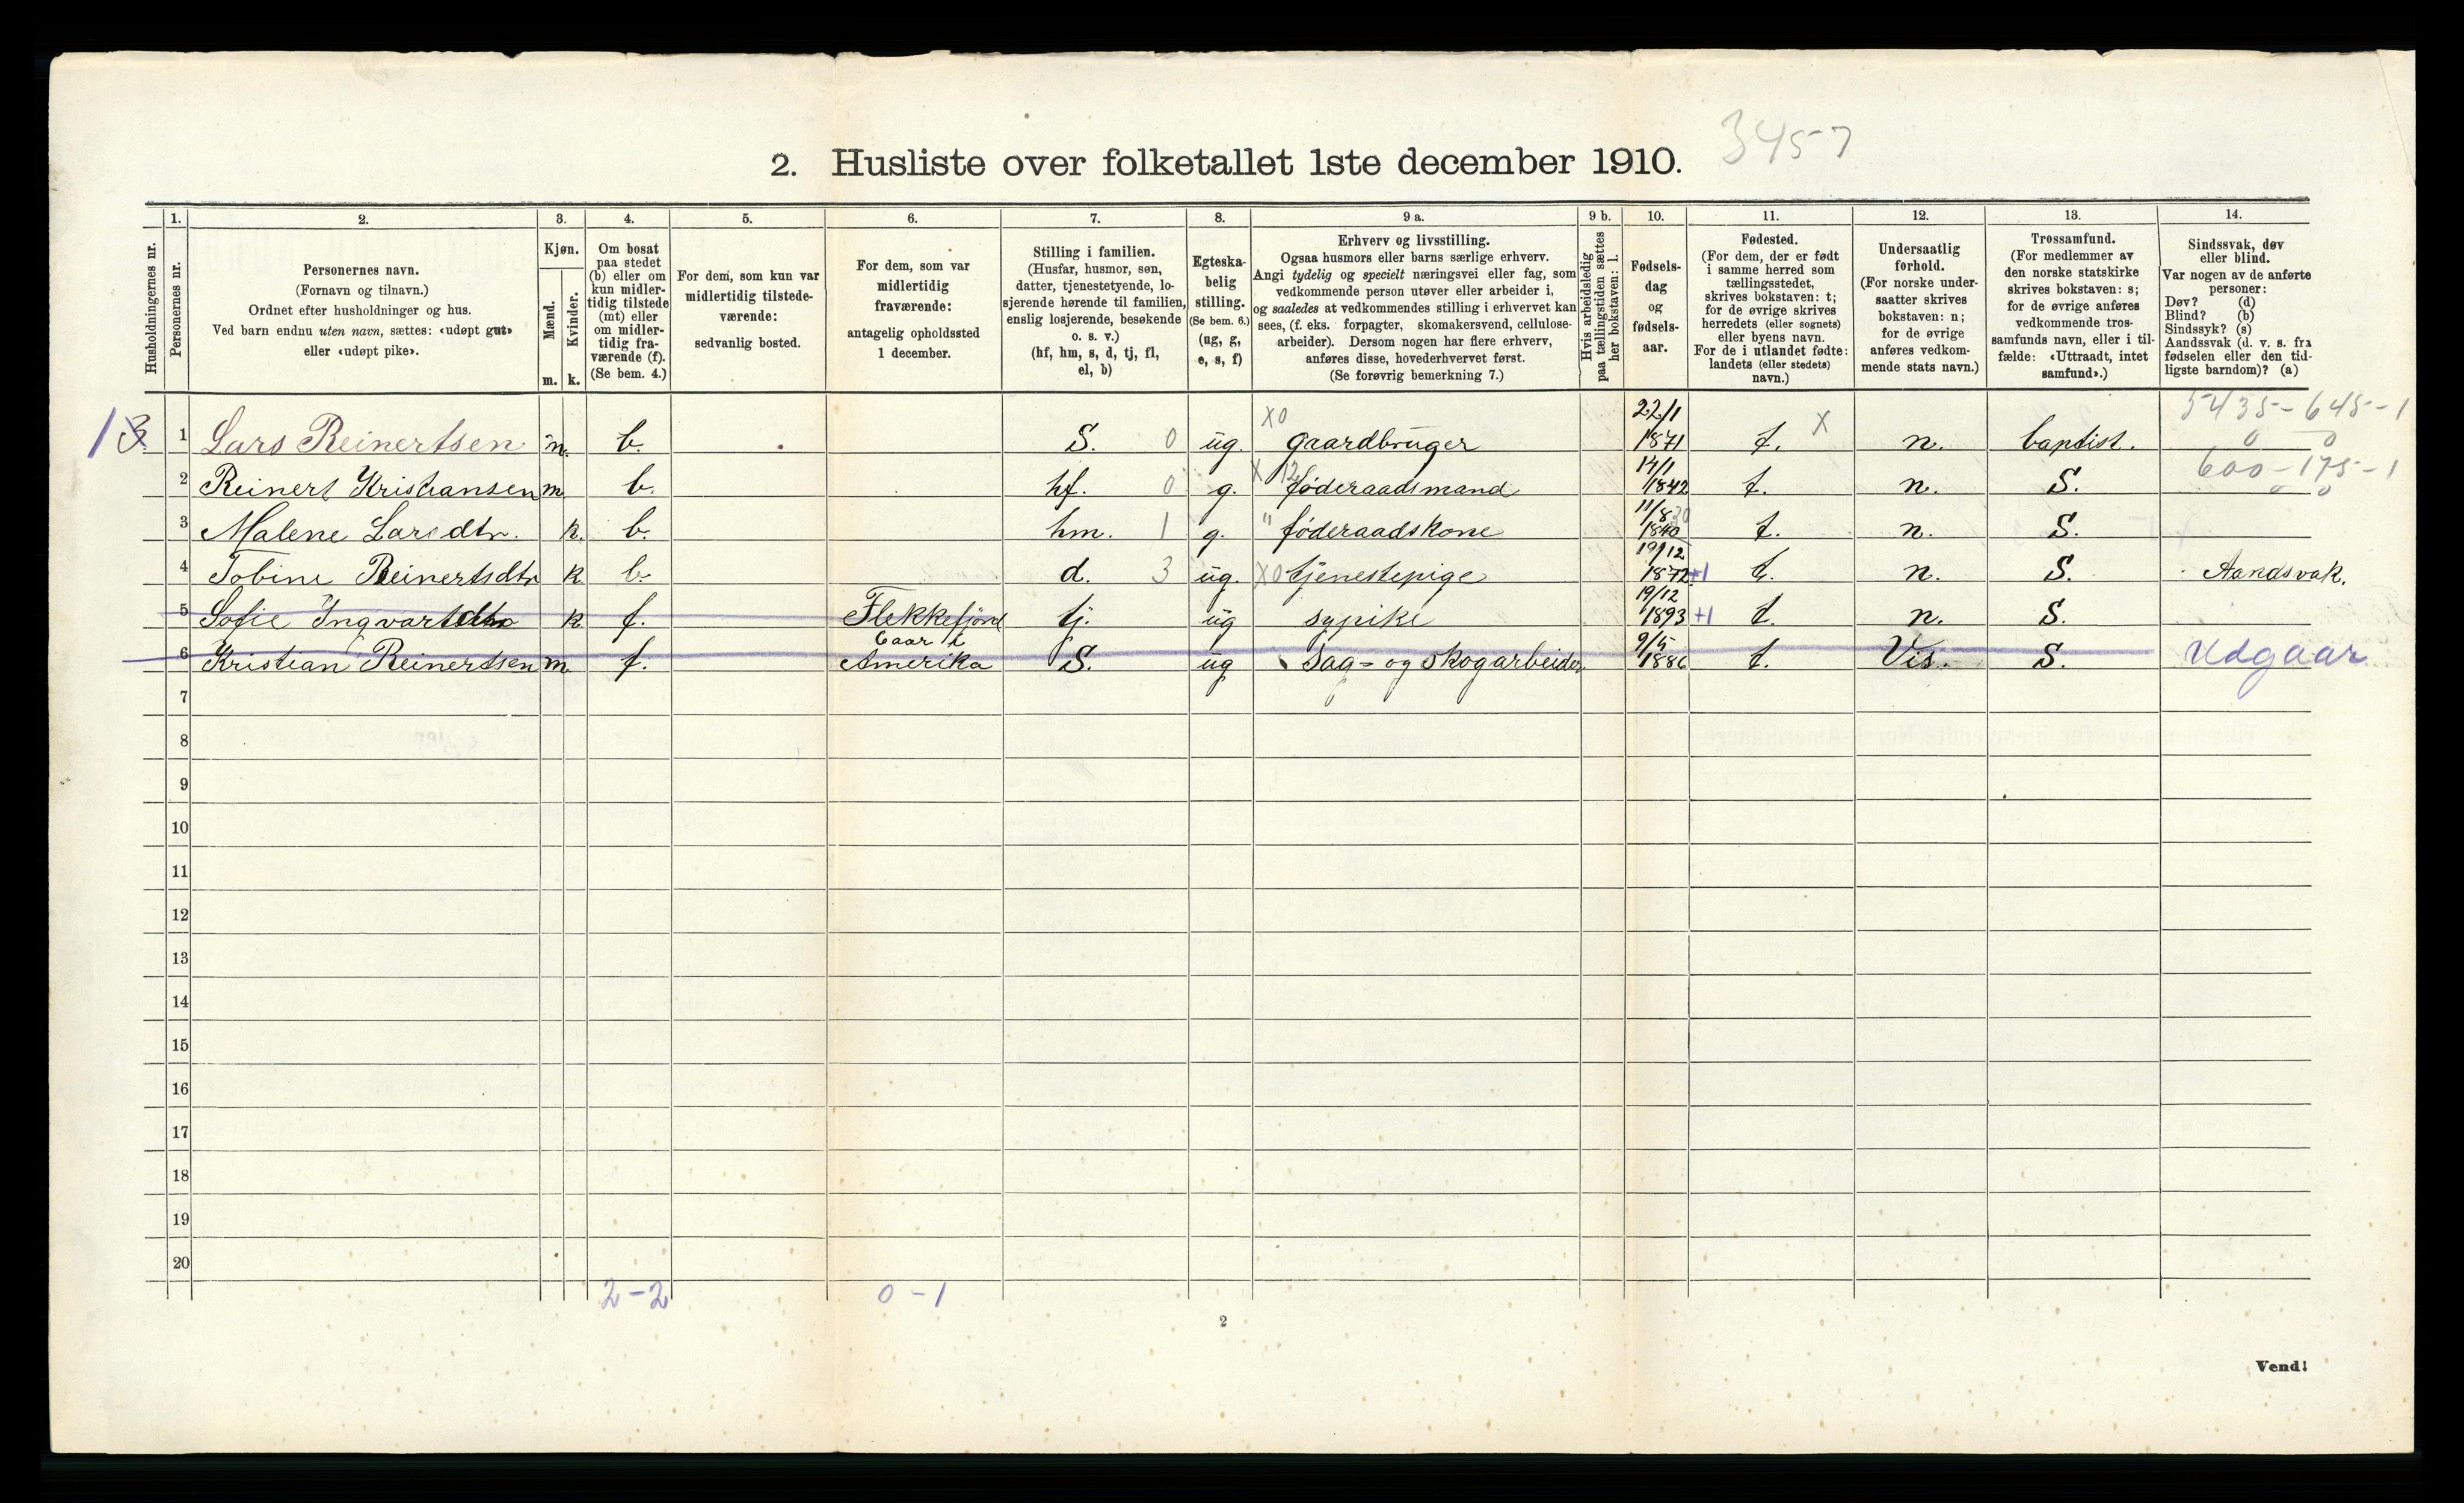 3457
2. Husliste over folketallet 1ste december 1910.
Husholdningernes nr.
1.
Personernes nr.
2.
Personernes navn.
(Fornavn og tilnavn.)
Ordnet efter husholdninger og hus.
Ved barn endnu uten navn, sættes: «udøpt gut»
eller «udøpt pike».
3.
Kjøn.
Mænd.
Kvinder.
m. k.
4.
Om bosat
paa stedet
(b) eller om
kun midler-
tidig tilstede
(mt) eller
om midler-
tidig fra-
værende (f).
(Se bem. 4.)
5.
For dem, som kun var
midlertidig tilstede-
værende:
sedvanlig bosted.
6.
For dem, som var
midlertidig
fraværende:
antagelig opholdssted
1 december.
7.
Stilling i familien.
(Husfar, husmor, søn,
datter, tjenestetyende, lo-
sjerende hørende til familien,
enslig losjerende, besøkende
o. s. v.)
(hf, hm, s, d, tj, fl,
el, b)
8.
Egteska-
belig
stilling.
(Se bem. 6.)
(ug, g,
e, s, f)
9 a.
Erhverv og livsstilling.
Ogsaa husmors eller barns særlige erhverv.
Angi tydelig og specielt næringsvei eller fag, som
vedkommende person utøver eller arbeider i,
og saaledes at vedkommendes stilling i erhvervet kan
sees, (f. eks. forpagter, skomakersvend, cellulose-
arbeider). Dersom nogen har flere erhverv,
anføres disse, hovederhvervet først.
(Se forøvrig bemerkning 7.)
9 b.
Hvis arbeidsledig
paa tællingstiden sættes
her bokstaven: l.
10.
Fødsels-
dag
og
fødsels-
aar.
11.
Fødested.
(For dem, der er født
i samme herred som
tællingsstedet,
skrives bokstaven: t;
for de øvrige skrives
herredets (eller sognets)
eller byens navn.
For de i utlandet fødte:
landets (eller stedets)
navn.)
12.
Undersaatlig
forhold.
(For norske under-
saatter skrives
bokstaven: n;
for de øvrige
anføres vedkom-
mende stats navn.)
13.
Trossamfund.
(For medlemmer av
den norske statskirke
skrives bokstaven: s;
for de øvrige anføres
vedkommende tros-
samfunds navn, eller i til-
fælde: «Uttraadt, intet
samfund».)
14.
Sindssvak, døv
eller blind.
Var nogen av de anførte
personer:
Døv? (d)
Blind? (b)
Sindssyk? (s)
Aandssvak (d. v. s. fra
fødselen eller den tid-
ligste barndom)? (a)
5435-645-1
0 0
13. 1 Lars Reinertsen m. b. S. 0 ug. X0 gaardbruger 22/1 1871 t. X n. baptist.
600-175-1
0 0
2 Reinert Kristiansen m b. hf. 0 g. X 12 føderaadsmand 14/1 1842 t. n. S.
3 Malene Larsdtr. k. b. hm. 1 g. " føderaadskone 11/8 1840 t. n. S.
4 Tobine Reinertsdtr k b. d. 3 ug. X0 tjenestepige 19/12 1872 +1 t. n. S. Aandsvak.
5 Sofie Ingvartsdtr k f. Flekkefjord tj. ug sypike 19/12 1893 +1 t. n. S.
6 Kristian Reinertsen m f. 6 aar i Amerika S. ug Sag- og skogarbeider 9/5 1886 t. Vis. S. Udgaar
7
8
9
10
11
12
13
14
15
16
17
18
19
20
2-2 0-1
2
Vend!